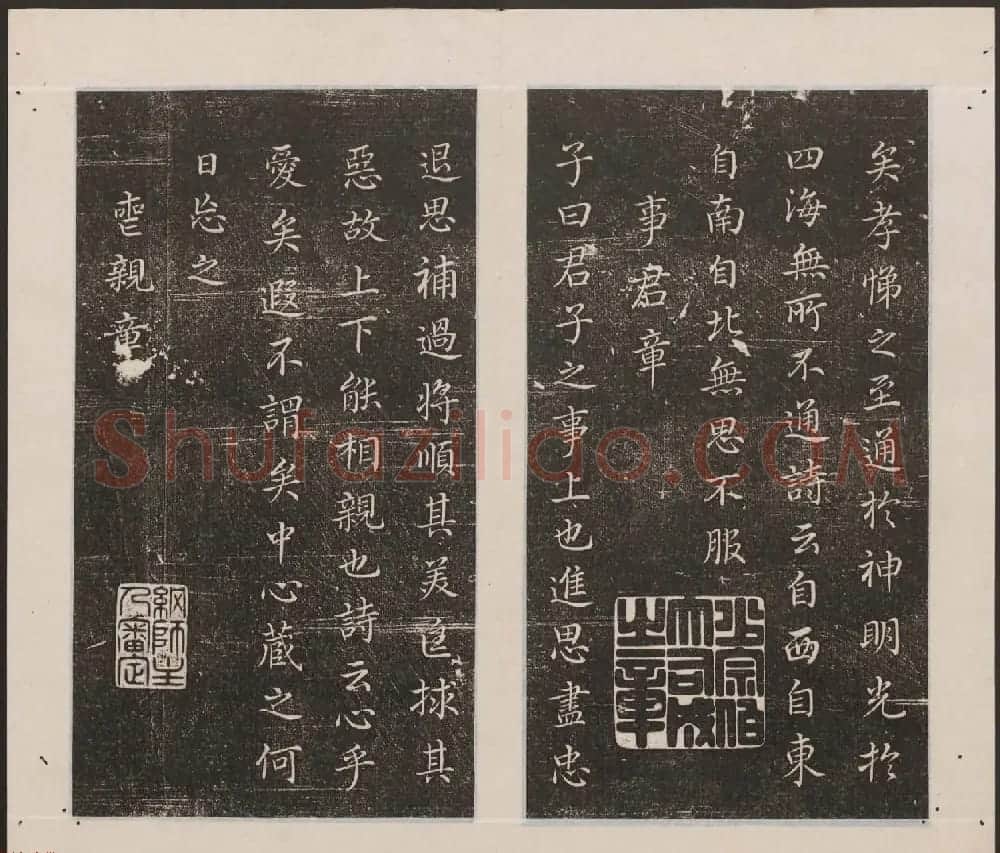 矣孝悌之至通於神明光於
四海無所不通詩云自西自東
自南自北無思不服
事君章
子曰君子之事上也進思盡忠
少宗伯
大司成
之章
退思補過將順其美匡捄其
惡故上下能相親也詩云心乎
愛矣遐不謂矣中心藏之何
日忘之
喪親章
網師主
人審定
Shufazilido.COM